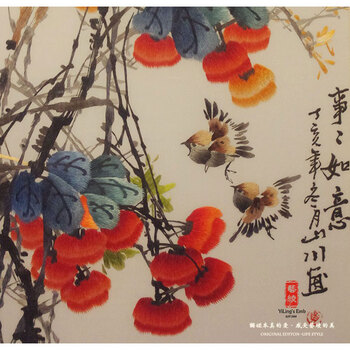 事〻如意
丁亥年冬月山川画
藝綾
YiLing's Emb
觸碰本真的愛·感受藝綾的美
ORIGINAL EDITION·LIFE STYLE